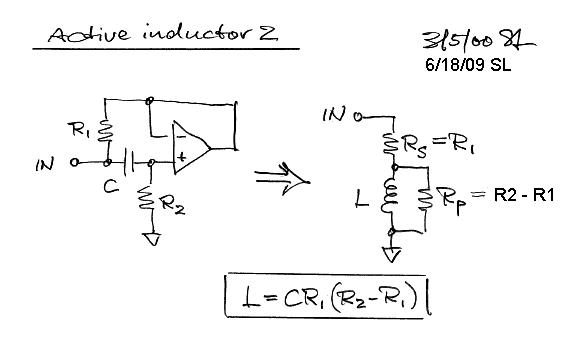 Active inductor 2
3/5/00 SL
6/18/09 SL
R1
IN
C
-
+
R2
IN
Rs=R1
L
Rp = R2 - R1
L=CR1(R2-R1)